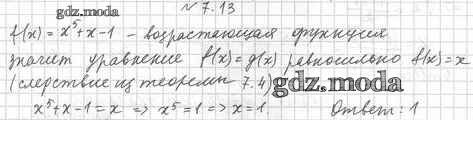 gdz.moda
№ 7.13
f(x) = x⁵+x-1 - возрастающая функция
значит уравнение f(x)=g(x) равносильно f(x)=x
(следствие из теоремы 7.4)
gdz.moda
x⁵+x-1=x => x⁵=1 => x=1. Ответ: 1